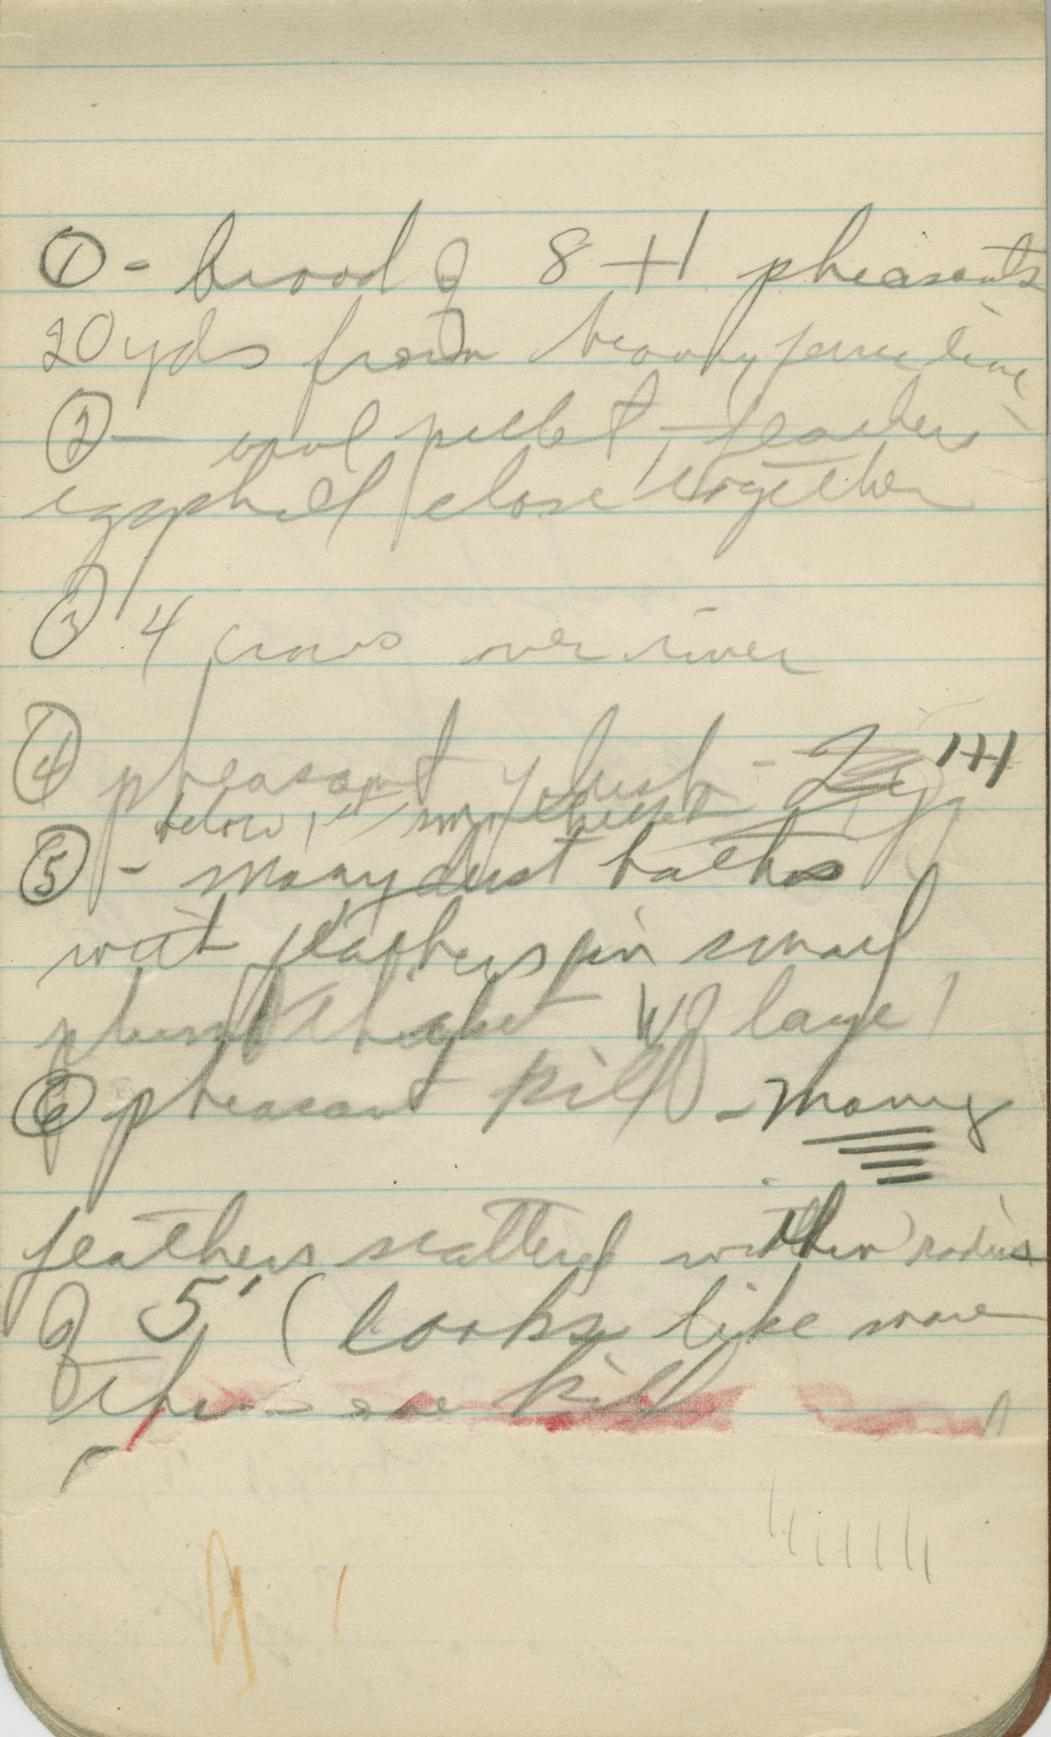 ① - brood of 8 + 1 pheasants
20 yds from brushy fence line
② - owl pellet, feathers
eggshell close together
③ 4 crows over river
④ pheasant dust - 1+1
below, in
⑤ - many dust baths
with feathers in small
plum thicket W of large 1
⑥ pheasant kill - many
feathers scattered within radius
of 5' (looks like more
than one kill